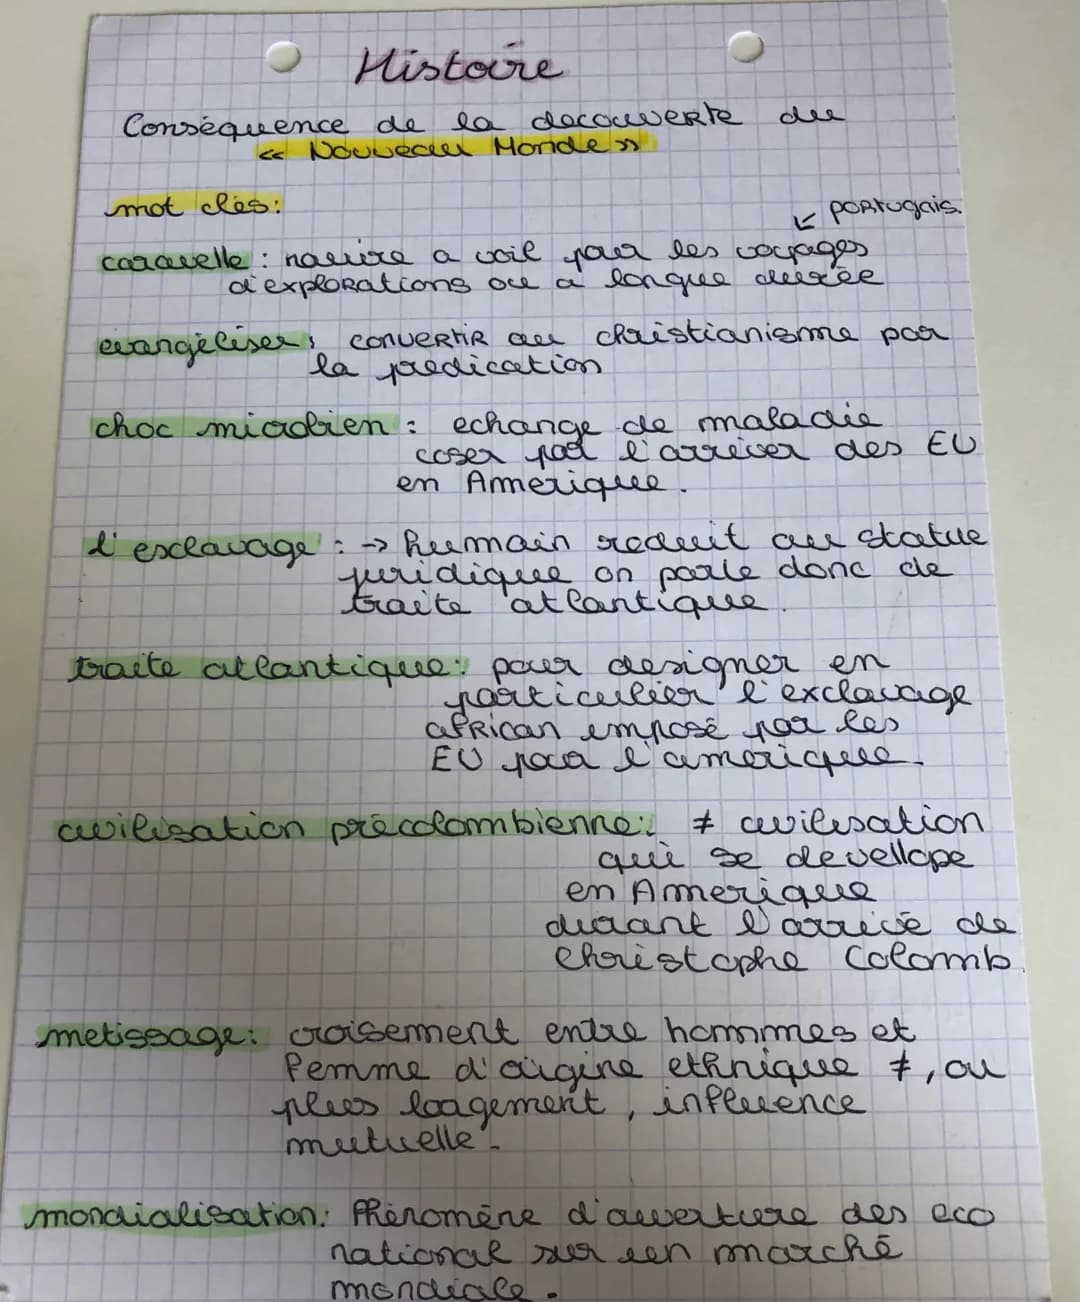 Histoire
Conséquence de la decouverte du
« Nouveau Monde »
mot clés:
↙ PORtugais.
caravelle : navire a voil pour les voyages
d'explorations ou a longue durée
evangéliser : convertir au christianisme par
la predication
choc microbien : echange de maladie
coser par l'arriver des EU
en Amerique.
l'esclavage : → humain reduit au statue
juridique on parle donc de
traite atlantique.
traite atlantique: pour designer en
particulier l'exclavage
african imposé par les
EU pour l'amerique.
civilisation précolombienne: ≠ civilisation
qui se devellope
en Amerique
durant l'arrivé de
Christophe Colomb.
metissage: croisement entre hommes et
femme d'origine ethnique ≠, ou
plus loagement, influence
mutuelle.
mondialisation: Phénomène d'ouverture des eco
national sur un marché
mondiale.